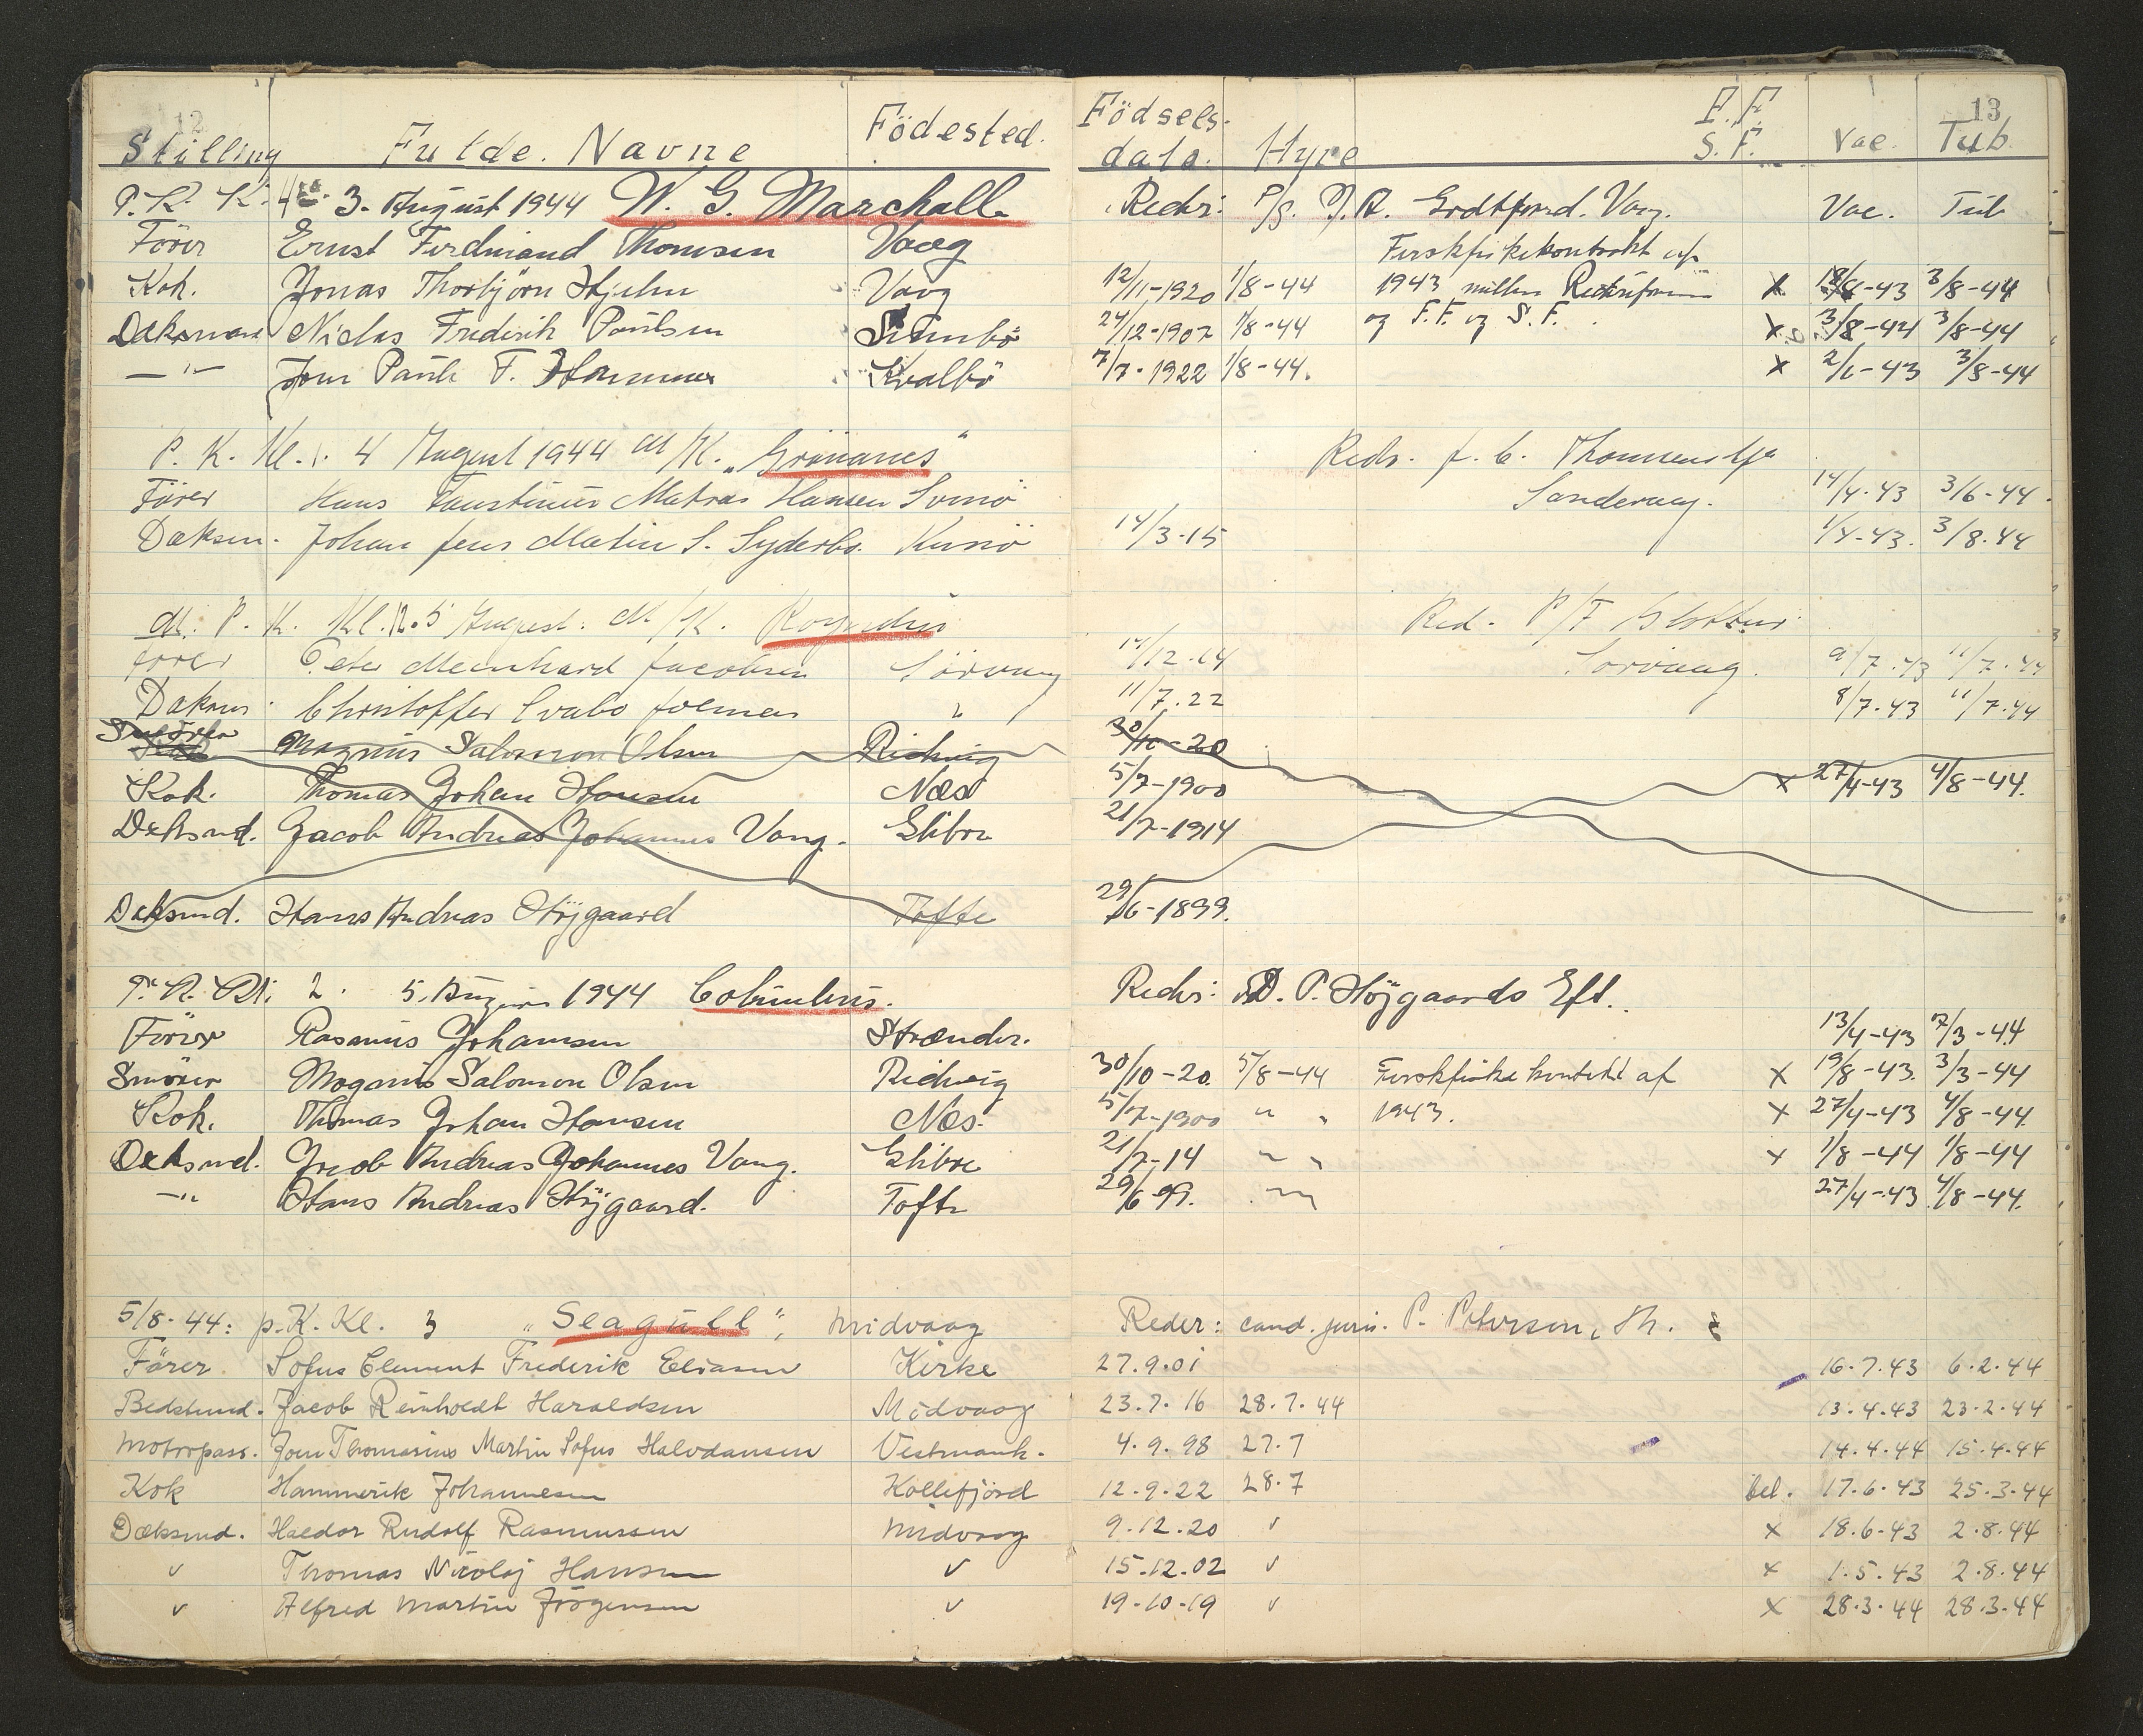 12 13
Stilling Fulde. Navne Födested. Födsels- data. Hyre F.F. S.F. Vac. Tub.
P. K. K. 3. August 1944 W. G. Marchall Rederi: P/S. Vaag. Vac. Tub
Förer Ernst Ferdinand Thomsen Vaag Ferskfiskekontrakt af
Kok. Jonas Thorbjörn Hjelm Vaag 12/11-1920 1/8-44 1943 mellem Rederiforen x -43 3/8-44
Dæksmand Niclas Frederik Poulsen Sumbö 24/12-1907 1/8-44 og F.F. og S.F. x 3/8-44 3/8-44
—"— Jens Pauli F. Hammer Kvalbö 7/7-1922 1/8-44. x 2/6-43 3/8-44
P. K. Kl. 4 August 1944 M/K. „Grönanes" Reder. J. C. Thomsen
Förer Hans Faustinus Matras Hansen Svinö Sandevaag. 14/4-43 3/6-44.
Dæksm. Johan Jens Martin S. Syderbö. Kunö 14/3-15 1/4-43. 3/8.44
M. P. K. Kl. 12. 5 August. M/K. Red. P/F
förer Peter Meinhard Jacobsen Sörvaag 14/12.14 Sorvaag. 9/7.43 11/7.44
Dæksm. Christoffer Svabo Joensen " 11/7.22 8/7.43 11/7.44
Smörer Magnus Salomon Olsen Ridvig 30/10-20
Kok. Thomas Johan Hansen Næs 5/7-1900 x 27/4-43 4/8-44.
Dæksmd. Jacob Andreas Johannes Vang. Glibre 21/7-1914
Dæksmd. Hans Andreas Höjgaard Tofte 29/6-1899.
2. 5. August 1944 Columbus. Rederi: D. P. Höjgaards Eft.
Förer Rasmus Johansen Strænder. 13/4-43 7/3-44
Smörer Magnus Salomon Olsen Ridvig 30/10-20. 5/8-44 Ferskfiskekontrakt af x 19/8-43. 3/3-44
Kok. Thomas Johan Hansen Næs. 5/7-1900 " " 1943. x 27/4-43 4/8-44.
Dæksmd. Jacob Andreas Johannes Vang. Glibre 21/7-14 " " x 1/8-44 1/8-44
—"— Hans Andreas Höjgaard. Tofte 29/6 99. " 27/4-43 4/8-44.
5/8-44: p.K.Kl. 3 „Seagull", Midvaag Reder: cand. juris. P. Petersen, Th.
Förer Sofus Clement Frederik Eliasen Kirke 27.9.01 16.7.43 6.2.44
Bedstmd. Jacob Reinholdt Haraldsen Midvaag 23.7.16 28.7.44 13.4.43 23.2.44
Motorpass. Jens Thomasius Martin Sofus Halvdansen Vestmanh. 4.9.98 27.7 14.4.44 15.4.44
Kok Hammerik Johannesen Kollefjörd 12.9.22 28.7 bel. 17.6.43 25.3.44
Dæksmd. Haldor Rudolf Rasmussen Midvaag 9.12.20 v x 18.6-43 2.8.44
v Thomas Nicolaj Hansen v 15.12.02 v x 1.5.43 2.8.44
v Alfred Martin Jörgensen v 19-10-19 v x 28.3.44 28.3.44